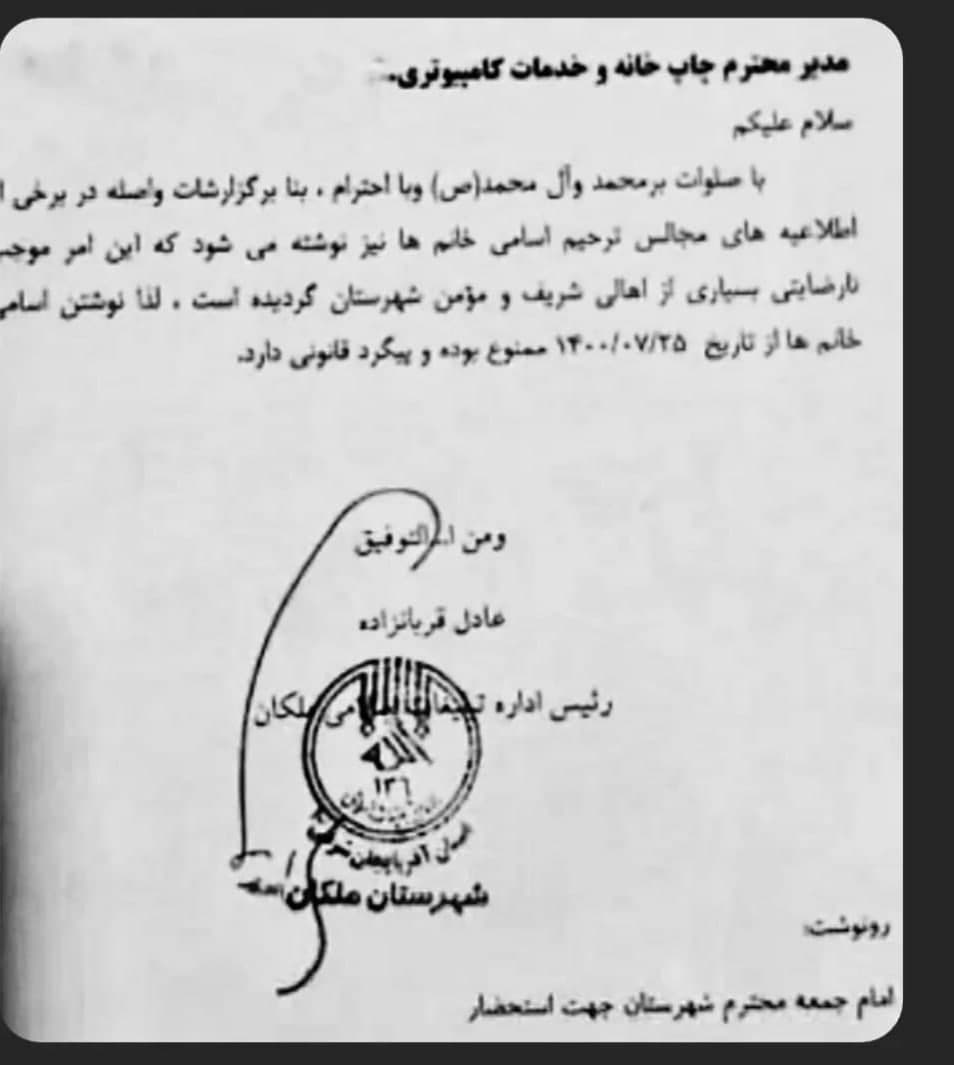 مدیر محترم چاپ خانه و خدمات کامپیوتری.
سلام علیکم
با صلوات برمحمد وآل محمد(ص) وبا احترام ، بنا برگزارشات واصله در برخی
اطلاعیه های مجالس ترحیم اسامی خانم ها نیز نوشته می شود که این امر موجب
نارضایتی بسیاری از اهالی شریف و مؤمن شهرستان گردیده است ، لذا نوشتن اسامی
خانم ها از تاریخ ۱۴۰۰/۰۷/۲۵ ممنوع بوده و پیگرد قانونی دارد.
ومن ا... التوفیق
عادل قربانزاده
رئیس اداره تبلیغات اسلامی ملکان
استان آذربایجان شرقی
شهرستان ملکان
رونوشت:
امام جمعه محترم شهرستان جهت استحضار